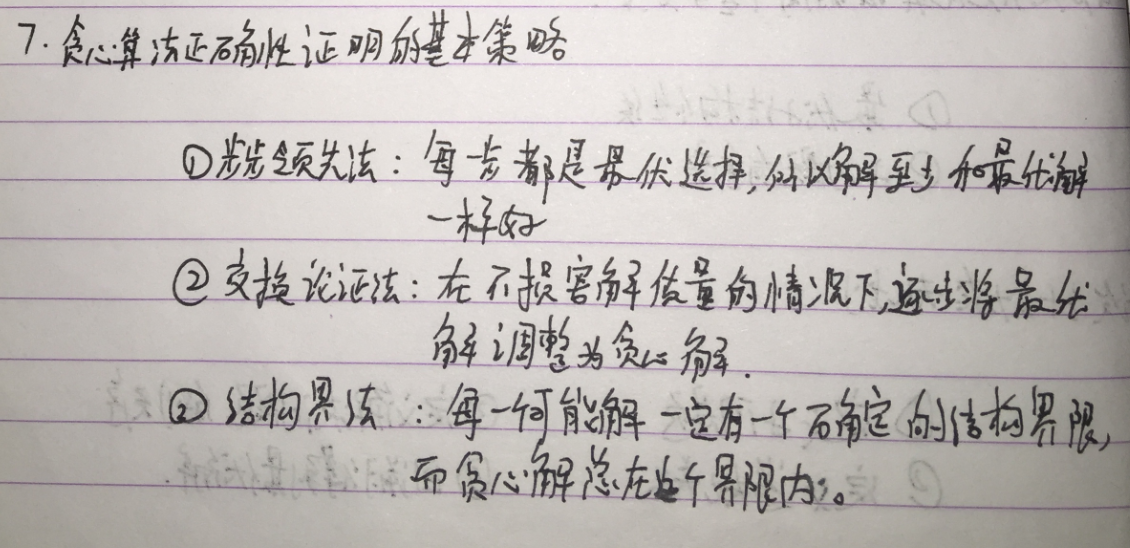 7. 贪心算法正确性证明的基本策略
①步步领先法：每一步都是最优选择，所以解至少和最优解
一样好
②交换论证法：在不损害解质量的情况下，逐步将最优
解调整为贪心解.
③结构界法：每一可能解一定有一个确定的结构界限，
而贪心解总在这个界限内。